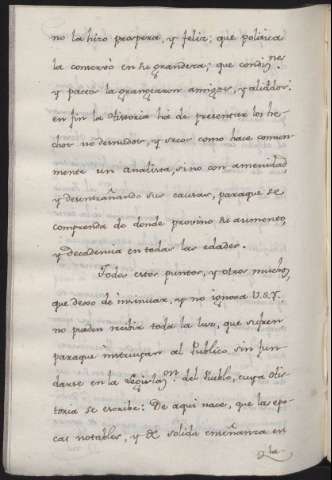 no la hizo prospera, y feliz; que politica
la conservó en su grandeza; que condiⁿᵉˢ
y pactos la grangearon amigos, y aliados:
en fin la Historia há de presentar los he-
chos no desnudos, y secos como hace comun-
mente un analista, sino con amenidad,
y desentrañando sus causas, paraque se
comprenda de donde provino su aumento,
y decadencia en todas las edades.
Todos estos puntos, y otros muchos,
que dexo de insinuar, y no ignora V.S.Y.
no pueden recibir toda la luz, que sufren
paraque instruyan al Publico, sin fun-
darse en la Legislºⁿ. del Pueblo, cuya His-
toria se escribe: De aqui nace, que las epo-
cas notables, y de solida enseñanza en
la